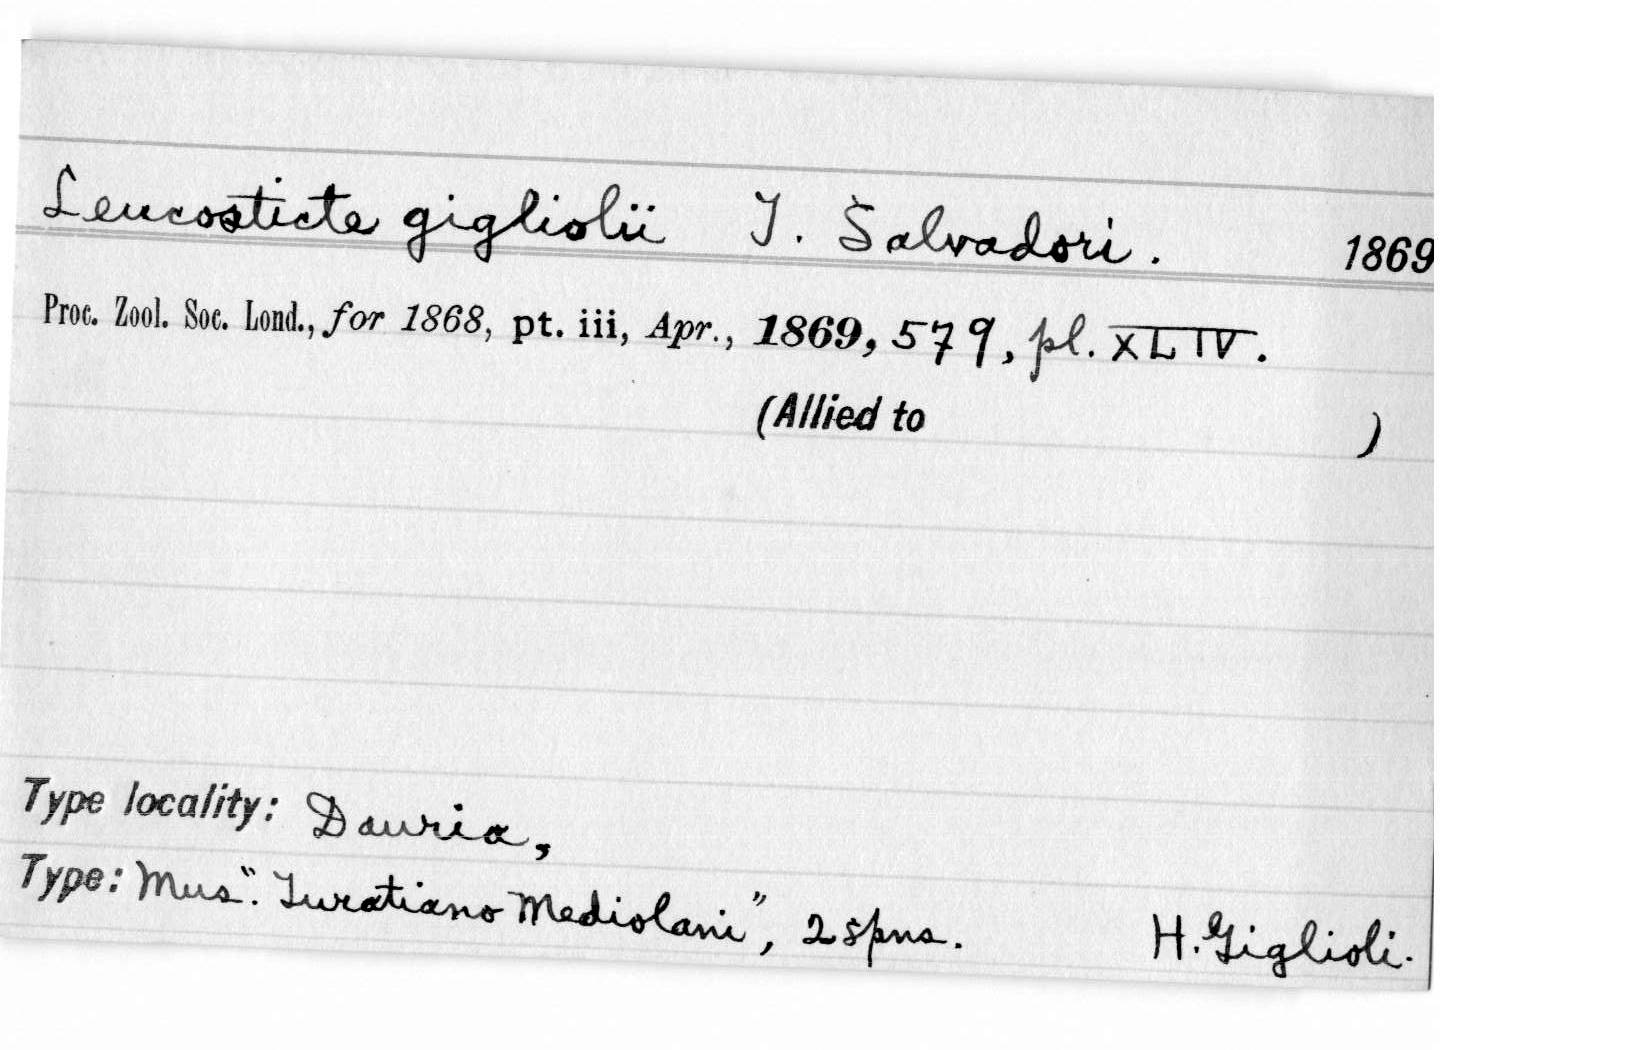 Leucosticte gigliolii T. Salvadori. 1869
Proc. Zool. Soc. Lond., for 1868, pt. iii, Apr., 1869, 579, pl. XLIV.
(Allied to )
Type locality: Dauria,
Type: Mus". Turatiano Mediolani", 2 spns. H. Giglioli.